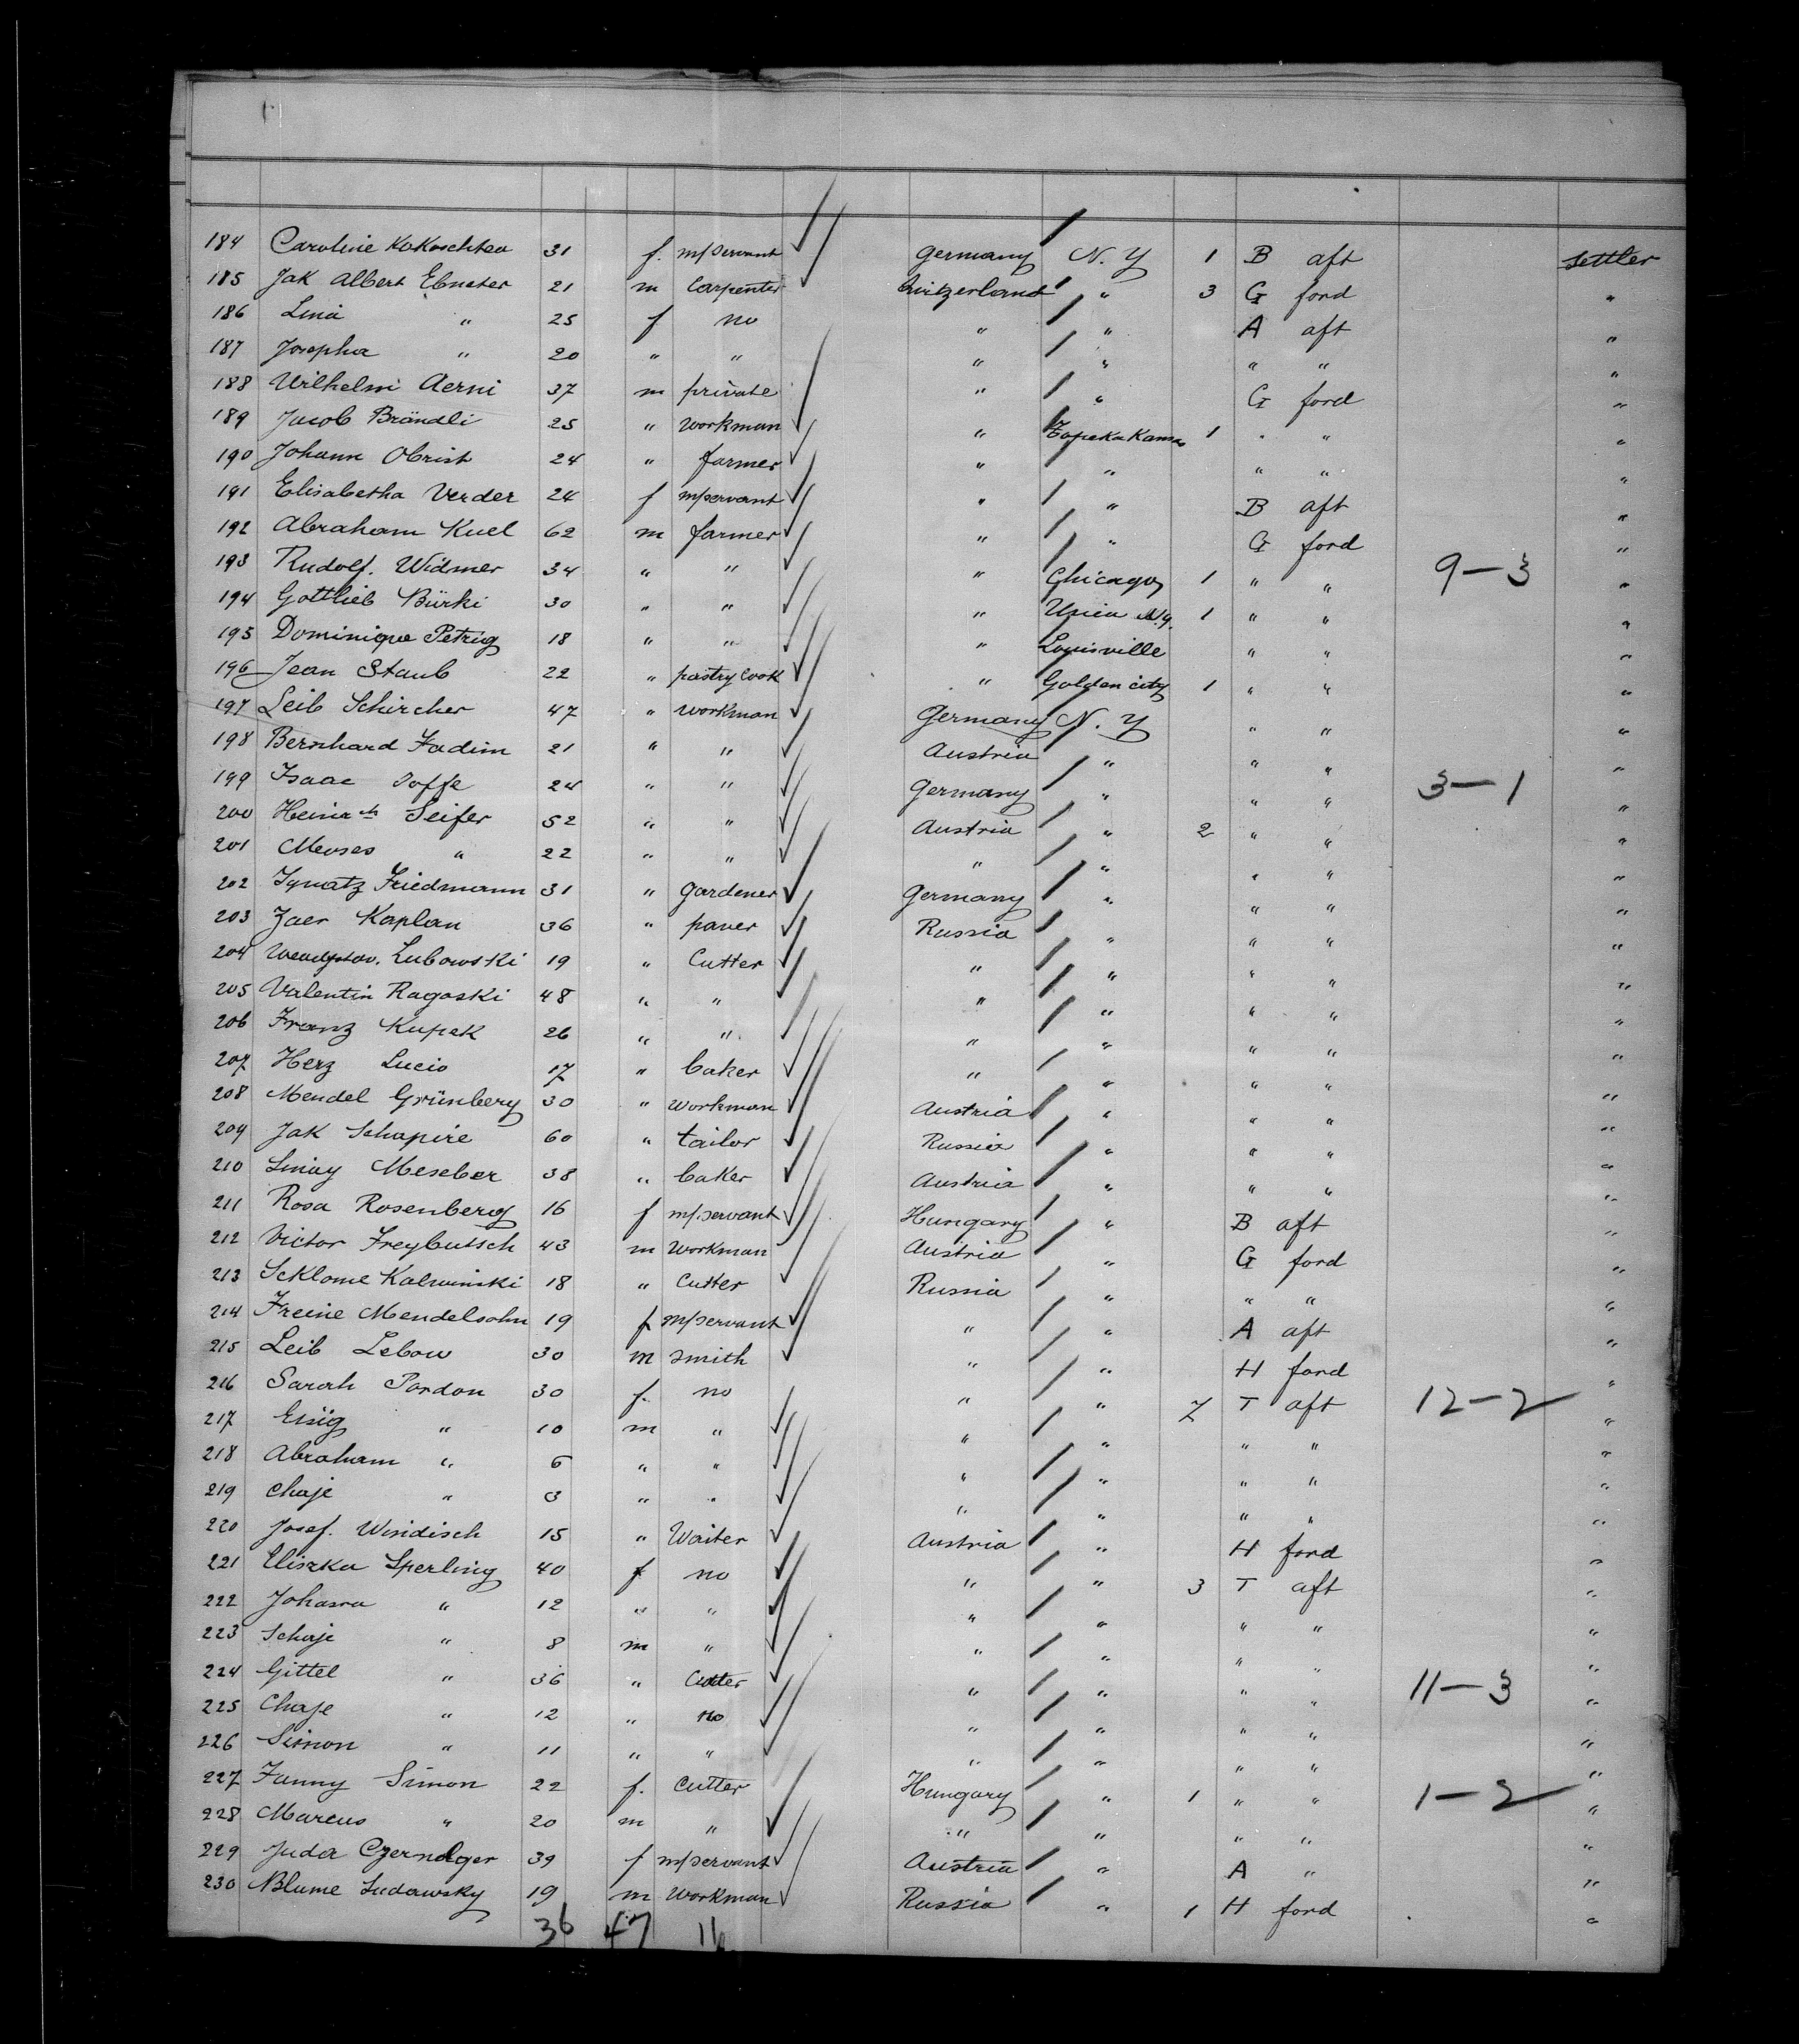 184 Caroline Kokoschka 31 f. m/servant Germany N. Y 1 B aft settler
185 Jak Albert Ebneter 21 m Carpenter Switzerland " 3 G ford "
186 Lina " 25 f no " " A aft "
187 Josepha " 20 " " " " " " "
188 Wilhelm Aerni 37 m private " " G ford "
189 Jacob Brändli 25 " workman " Topeka Kansas 1 " " "
190 Johann Obrist 24 " farmer " " " " "
191 Elisabetha Verder 24 f m/servant " " B aft "
192 Abraham Kuel 62 m farmer " " G ford "
193 Rudolf. Widmer 34 " " " Chicago 1 " " 9-3 "
194 Gottlieb Bürki 30 " " " N.Y. 1 " " "
195 Dominique Petrig 18 " " " Louisville " " "
196 Jean Staub 22 " pastry Cook " Golden city 1 " " "
197 Leib Schircher 47 " workman Germany N. Y " " "
198 Bernhard Fadim 21 " " Austria " " " "
199 Isaac Joffe 24 " " Germany " " " 3-1 "
200 Heinrch Seifer 52 " " Austria " 2 " " "
201 Meuses " 22 " " " " " " "
202 Ignatz Friedmann 31 " gardener Germany " " " "
203 Zaer Kaplan 36 " paver Russia " " " "
204 Lubowski 19 " Cutter " " " " "
205 Valentin Ragoski 48 " " " " " " "
206 Franz Kupek 26 " " " " " " "
207 Herz Lucio 17 " baker " " " " "
208 Mendel Grünberg 30 " workman Austria " " " "
209 Jak Schapire 60 " tailor Russia " " " "
210 Meseber 38 " baker Austria " " " "
211 Rosa Rosenberg 16 f m/servant Hungary " B aft "
212 Victor Freybutsch 43 m workman Austria " G ford "
213 Scklome Kalwinski 18 " Cutter Russia " " " "
214 Freine Mendelsohn 19 f m/servant " " A aft "
215 Leib Lebow 30 m smith " " H ford "
216 Sarah Pordon 30 f. no " " 7 T aft 12-2 "
217 Eisig " 10 m " " " " " "
218 Abraham " 6 " " " " " " "
219 Chaje " 3 " " " " " " "
220 Josef. Windisch 15 " Waiter Austria " H ford "
221 Eliszka Sperling 40 f no " " 3 T aft "
222 Johanna " 12 " " " " " " "
223 Schaje " 8 m " " " " " "
224 Gittel " 36 " Cutter " " " " 11-3 "
225 Chaje " 12 " no " " " " "
226 Simon " 11 " " " " " " "
227 Fanny Simon 22 f. Cutter Hungary " 1 " " 1-2 "
228 Marcus " 20 m " " " " " "
229 Juda 39 f m/servant Austria " A " "
230 Blume Sudawsky 19 m workman Russia " 1 H ford "
36 47 11